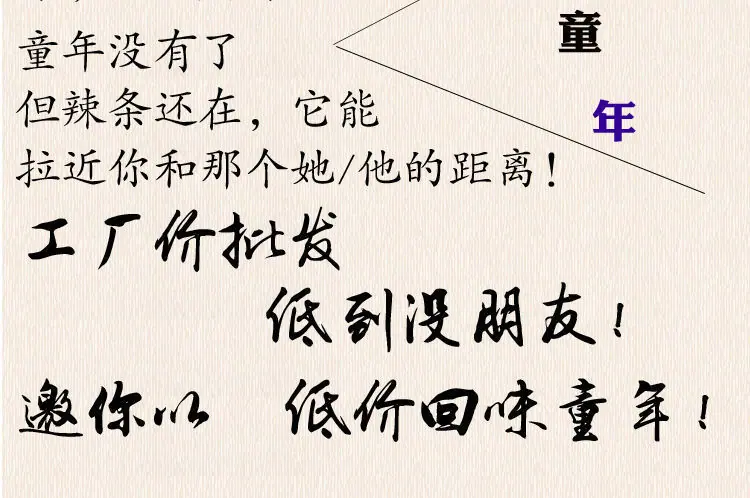 童年没有了
但辣条还在，它能
拉近你和那个她/他的距离！
童
年
工厂价批发
低到没朋友！
邀你以 低价回味童年！